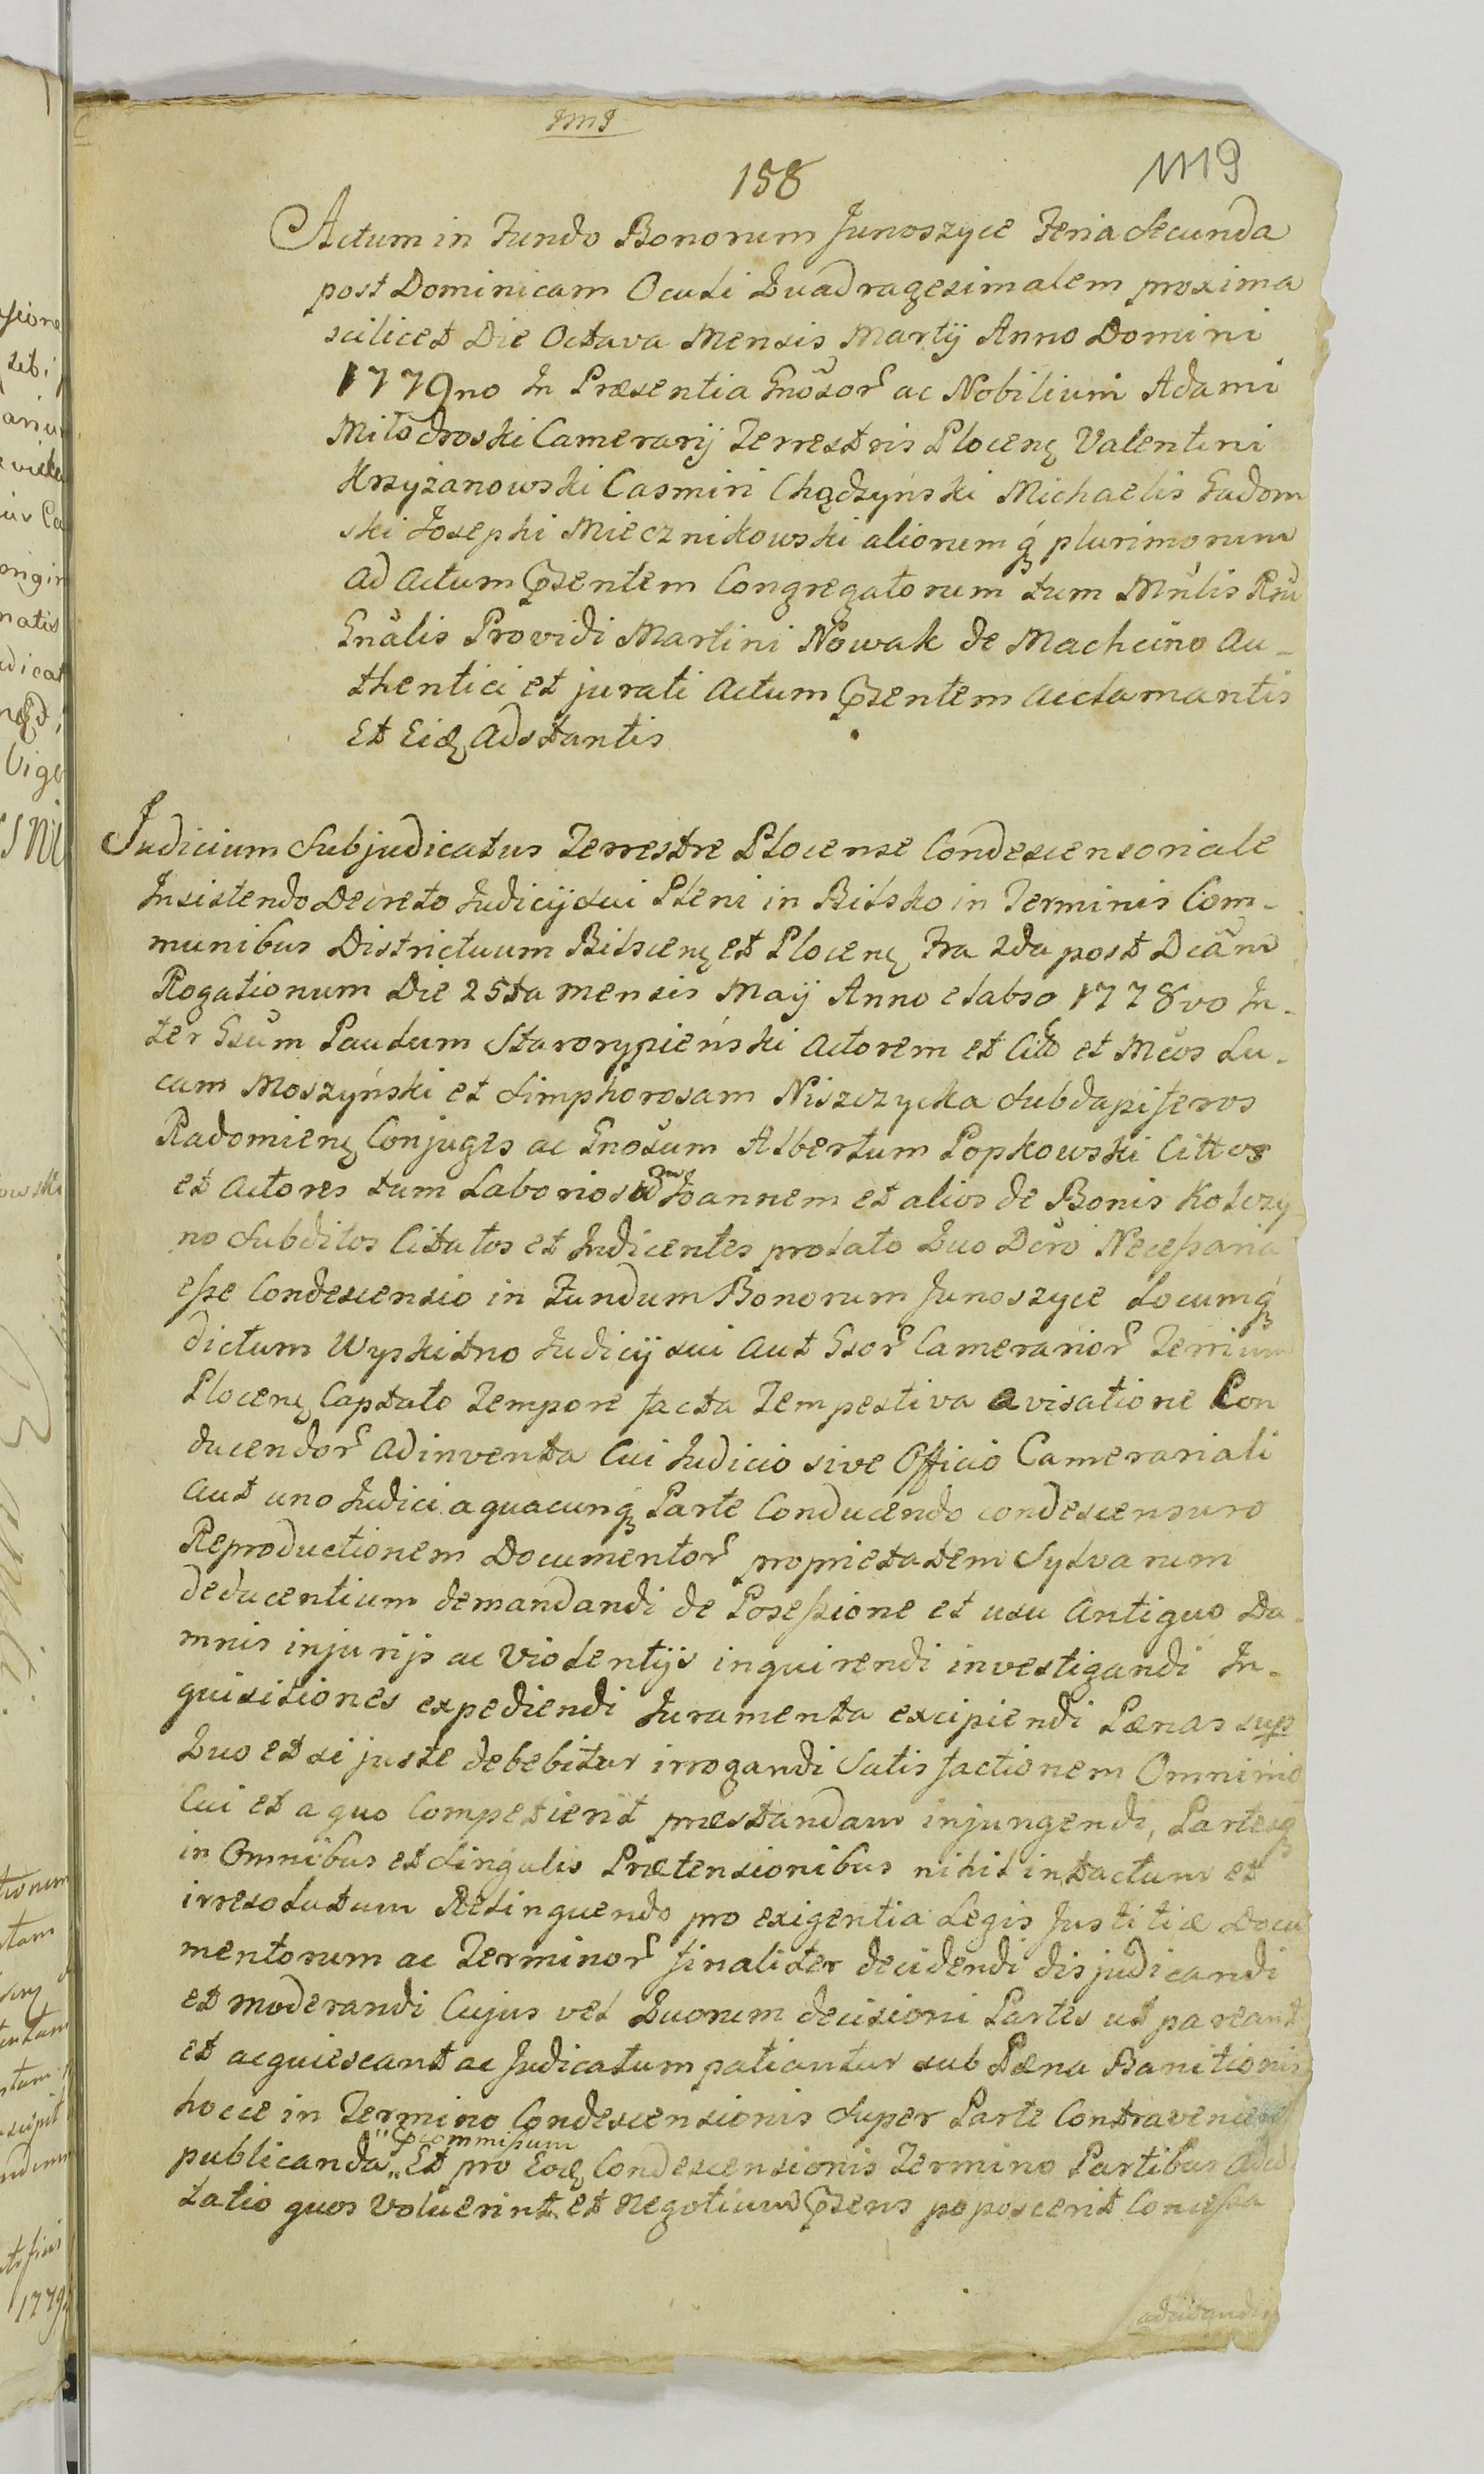 JMJ
158
1119
Actum in Fundo Bonorum Junoszyce Feria Secunda
post Dominicam Oculi Quadragesimalem proxima
scilicet Die Octava Mensis Martij Anno Domini
1779no In Præsentia Gnõsor ac Nobilium Adami
Miłodroski Camerarij Terrestris Plocen Valentini
Krzyżanowski Casmiri Chądzyński Michaelis Gadom
ski Josephi Miecznikowski aliorumq plurimorum
ad Actum Pzentem Congregatorum tum Mnlis Rni
Gnãlis Providi Martini Nowak de Machcino Au-
thentici et jurati Actum Pzentem acclamantis
Et Eid Adstantis
Judicium Subjudicatus Terrestre Plocense Condescensoriale
Insistendo Decreto Judicij sui Pleni in Bilsko in Terminis Com-
munibus Districtuum Bilscen et Plocen Fra 2da post Dcãm
Rogationum Die 25ta Mensis Maij Anno elabso 1778vo In-
ter Gsum Paulum Starorypieński Actorem et Citt et Mcos Lu-
cam Moszyński et Simphorosam Niszczycka Subdapiferos
Radomien Conjuges ac Gnosum Albertum Popkowski Cittos
et Actores tum Laboriosum Joannem et alios de Bonis Kolczy
no Subditos Citatos et Indicentes prolato Quo Dcro Necessaria
esse Condescensio in Fundum Bonorum Junoszyce Locumq
dictum Wyskitno Judicij sui aut Gsor Camerarior Terrium
Plocen Captato Tempore facta Tempestiva avisatione Con
ducendor adinventa Cui Judicio sive Officio Camerariali
aut uno Judici a quacunq Parte Conducendo condescensuro
Reproductionem Documentor proprietatem Sylvarum
deducentium demandandi de Posessione et usu Antiquo Da-
mnis injurijs ac Violentijs inquirendi investigandi In-
quisitiones expediendi Juramenta excipiendi Pænas sup
Quo et si juste debebitur irrogandi Satisfactionem Omnimo
Cui et a quo Competierit præstandam injungendi, Partesq
in Omnibus et Singulis Prætensionibus nihil intactum et
irresolutum Relinquendo pro exigentia Legis Justitiæ Docu
mentorum ac Terminor finaliter decidendi disjudicandi
et moderandi Cujus vel Quorum decisioni Partes ut pareant
et acquiescant ac Judicatum patiantur sub Pæna Banitionis
hocce in Termino Condescensionis Super Parte Contravenien
Pcommissum
publicanda Et pro Eod Condescensionis Termino Partibus Adci
tatio quos Voluerint et Negotium Pzens poposcerit Concessa
adcitandis